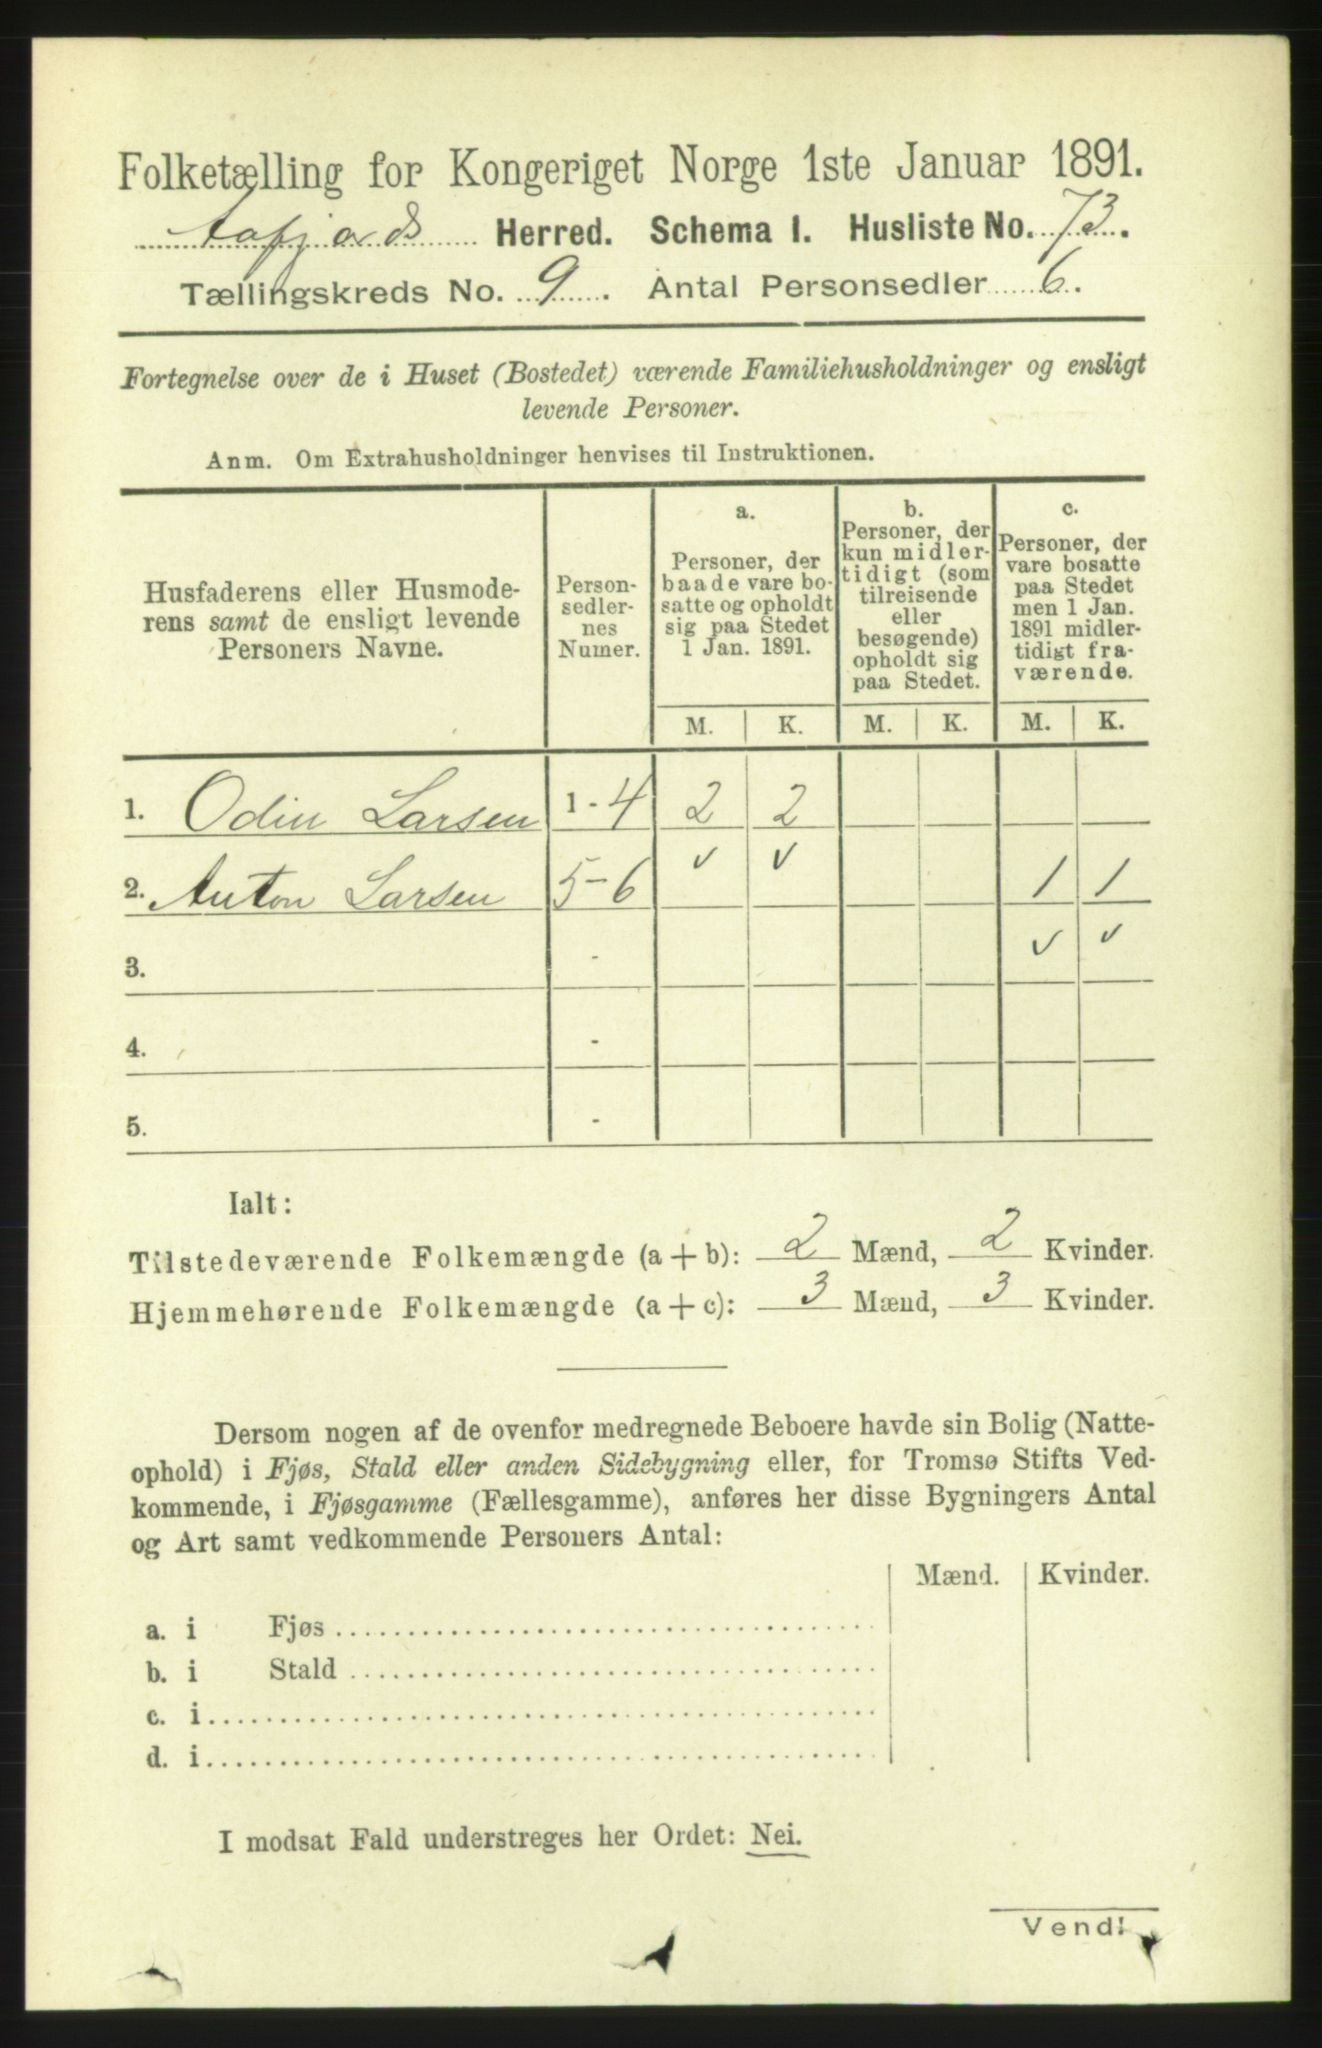 Folketælling for Kongeriget Norge 1ste Januar 1891.
Aafjords Herred. Schema I. Husliste No. 73.
Tællingskreds No. 9. Antal Personsedler 6.
Fortegnelse over de i Huset (Bostedet) værende Familiehusholdninger og ensligt
levende Personer.
Anm. Om Extrahusholdninger henvises til Instruktionen.
Husfaderens eller Husmode-
rens samt de ensligt levende
Personers Navne.
Person-
sedler-
nes
Numer.
a.
Personer, der
baade vare bo-
satte og opholdt
sig paa Stedet
1 Jan. 1891.
b.
Personer, der
kun midler-
tidigt (som
tilreisende
eller
besøgende)
opholdt sig
paa Stedet.
c.
Personer, der
vare bosatte
paa Stedet
men 1 Jan.
1891 midler-
tidigt fra-
værende.
M. K. M. K. M. K.
1. Odin Larsen 1 - 4 2 2
v v
2. Anton Larsen 5 - 6 1 1
v v
3. -
4. -
5. -
Ialt:
Tilstedeværende Folkemængde (a + b): 2 Mænd, 2 Kvinder.
Hjemmehørende Folkemængde (a + c): 3 Mænd, 3 Kvinder.
Dersom nogen af de ovenfor medregnede Beboere havde sin Bolig (Natte-
ophold) i Fjøs, Stald eller anden Sidebygning eller, for Tromsø Stifts Ved-
kommende, i Fjøsgamme (Fællesgamme), anføres her disse Bygningers Antal
og Art samt vedkommende Personers Antal:
Mænd. Kvinder.
a. i Fjøs
b. i Stald
c. i
d. i
I modsat Fald understreges her Ordet: Nei.
Vend!